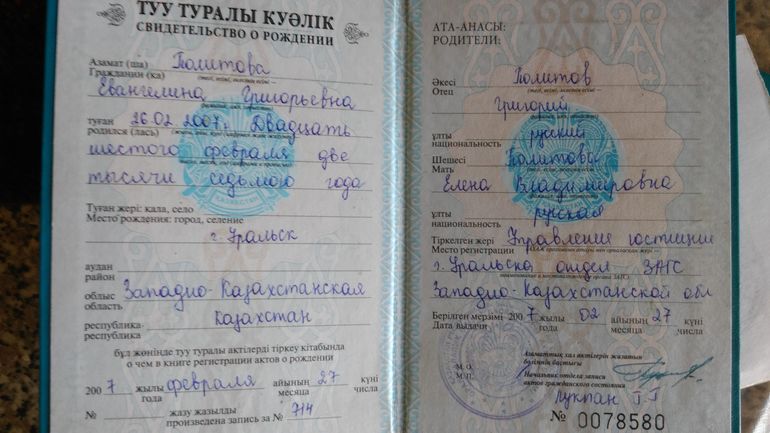 ТУУ ТУРАЛЫ КУӘЛІК
СВИДЕТЕЛЬСТВО О РОЖДЕНИИ
Азамат (ша)
Гражданин (ка)
Политова
Евангелина Григорьевна
туған
родился (лась)
26.02.2007г. Двадцать
шестого февраля две
тысячи седьмого года
Туған жері: қала, село
Место рождения: город, селение
г. Уральск
аудан
район
облыс
область
Западно-Казахстанская
республика-
республика-
Казахстан
бұл жөнінде туу туралы актілерді тіркеу кітабында
о чем в книге регистрации актов о рождении
2007 жылы
года
февраля айының
месяца
27 күні
числа
№
жазу жазылды
произведена запись за № 714
АТА-АНАСЫ:
РОДИТЕЛИ:
Әкесі
Отец
Политов
Григорий
ұлты
национальность
русский
Шешесі
Мать
Политова
Елена Владимировна
ұлты
национальность
русская
Тіркелген жері
Место регистрации
Управление юстиции
г. Уральска отдел ЗАГС
Западно-Казахстанской обл
Берілген мерзімі
Дата выдачи
2007 жылы
года
02 айының
месяца
27 күні
числа
М.О.
М.П.
Азаматтық хал актілерін жазатын
бөлімнің бастығы
Начальник отдела записи
актов гражданского состояния
№ 0078580